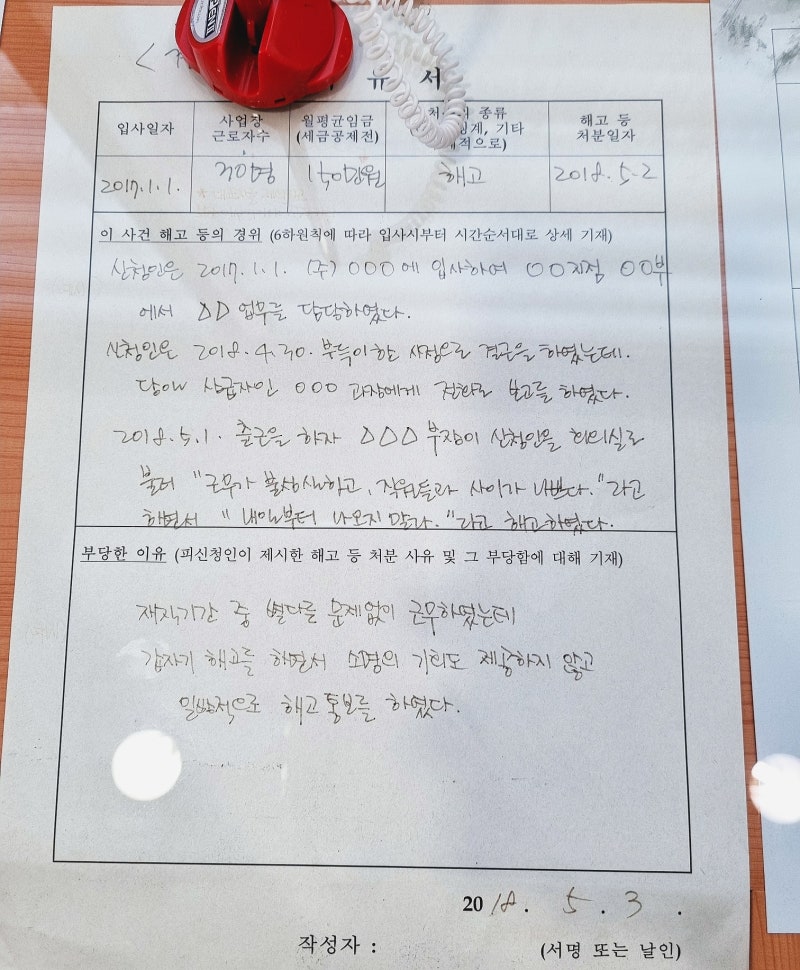 유 서
입사일자
사업장
근로자수
월평균임금
(세금공제전)
종류
기타
적으로)
해고 등
처분일자
2017.1.1.
150만원
해고
2018.5.2
이 사건 해고 등의 경위 (6하원칙에 따라 입사시부터 시간순서대로 상세 기재)
신청인은 2017.1.1. (주) OOO에 입사하여 OO지점 OO부
에서 △△ 업무를 담당하였다.
신청인은 2018.4.30. 부득이한 사정으로 결근을 하였는데.
당시 상급자인 OOO 과장에게 전화로 보고를 하였다.
2018.5.1. 출근을 하자 △△△ 부장이 신청인을 회의실로
불러 "근무가 불성실하고, 직원들과 사이가 나쁘다."라고
하면서 "내일부터 나오지 말라."라고 해고하였다.
부당한 이유 (피신청인이 제시한 해고 등 처분 사유 및 그 부당함에 대해 기재)
재직기간 중 별다른 문제없이 근무하였는데
갑자기 해고를 하면서 소명의 기회도 제공하지 않고
일방적으로 해고통보를 하였다.
2018. 5. 3.
작성자 :
(서명 또는 날인)